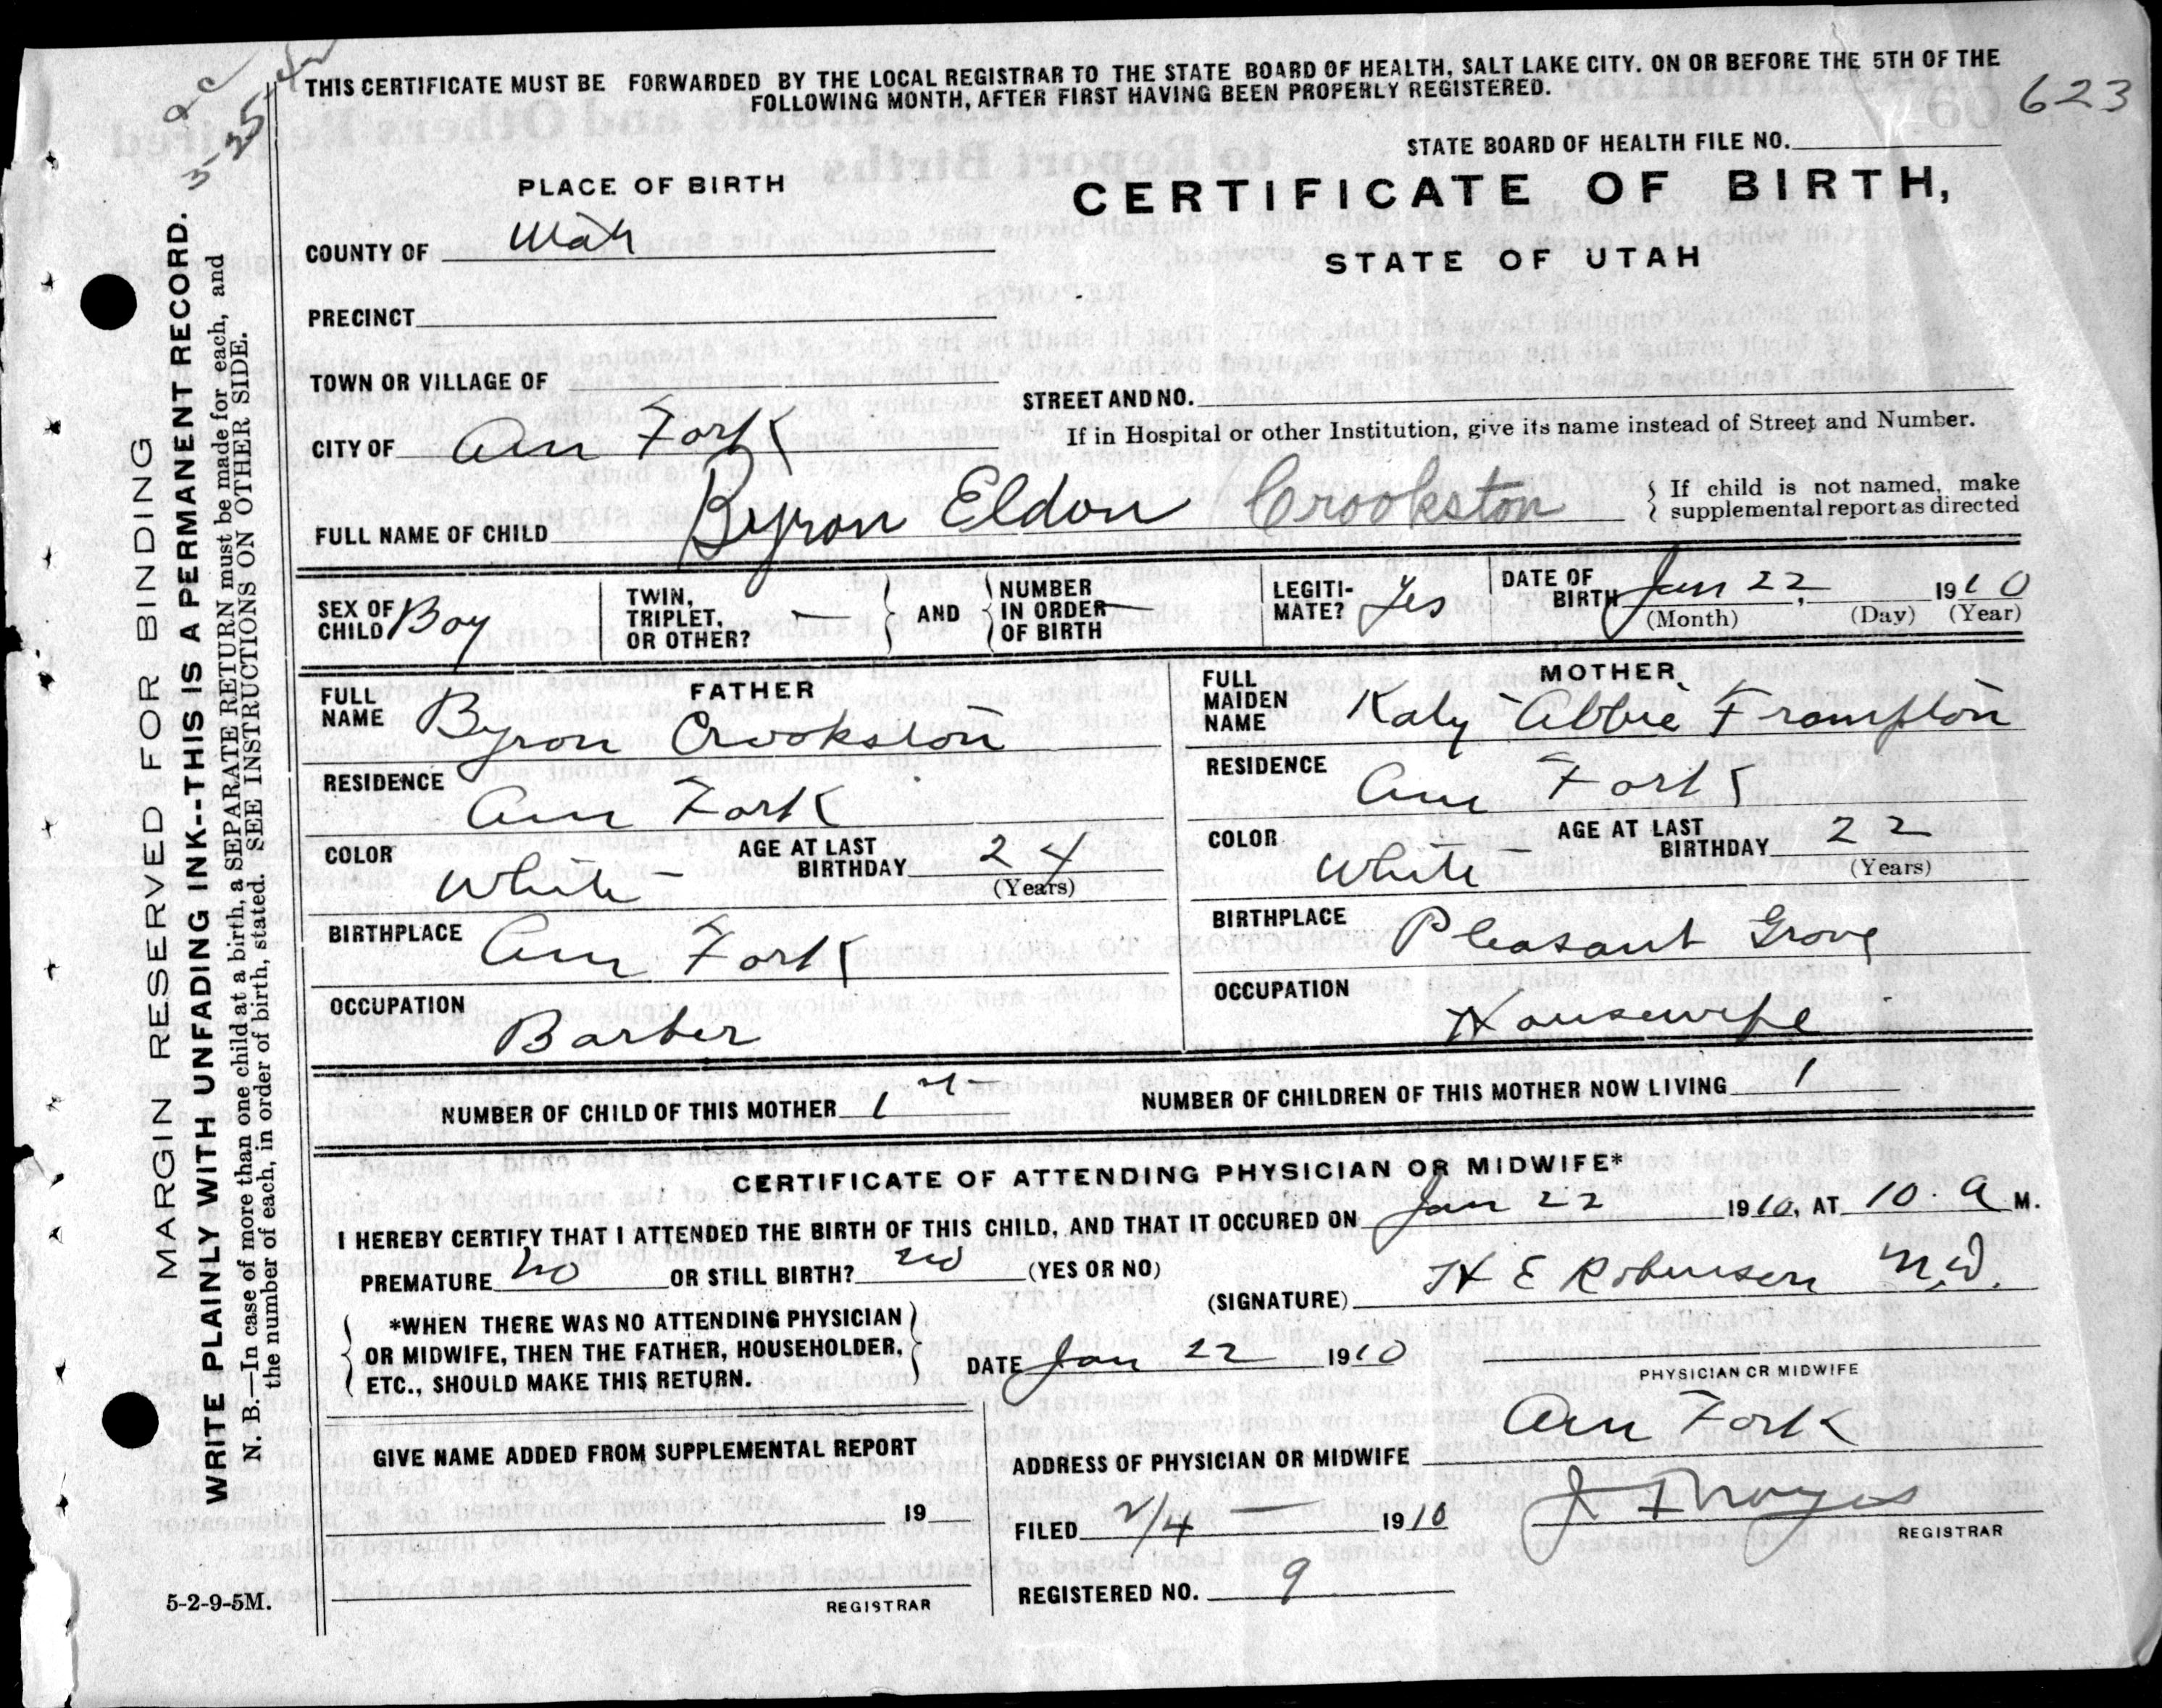 THIS CERTIFICATE MUST BE FORWARDED BY THE LOCAL REGISTRAR TO THE STATE BOARD OF HEALTH, SALT LAKE CITY. ON OR BEFORE THE 5TH OF THE
FOLLOWING MONTH, AFTER FIRST HAVING BEEN PROPERLY REGISTERED.
623
STATE BOARD OF HEALTH FILE NO.
PLACE OF BIRTH
CERTIFICATE OF BIRTH,
STATE OF UTAH
COUNTY OF Utah
PRECINCT
TOWN OR VILLAGE OF
STREET AND NO.
If in Hospital or other Institution, give its name instead of Street and Number.
CITY OF Am Fork
FULL NAME OF CHILD Byron Eldon Crookston
If child is not named, make
supplemental report as directed
SEX OF CHILD Boy
TWIN, TRIPLET, OR OTHER? —
AND
NUMBER IN ORDER OF BIRTH —
LEGITI-MATE? Yes
DATE OF BIRTH Jan 22, 1910
(Month) (Day) (Year)
FATHER
FULL NAME Byron Crookston
RESIDENCE Am Fork
COLOR White
AGE AT LAST BIRTHDAY 24
(Years)
BIRTHPLACE Am Fork
OCCUPATION Barber
MOTHER
FULL MAIDEN NAME Katy Abbie Frampton
RESIDENCE Am Fork
COLOR White
AGE AT LAST BIRTHDAY 22
(Years)
BIRTHPLACE Pleasant Grove
OCCUPATION Housewife
NUMBER OF CHILD OF THIS MOTHER 1
NUMBER OF CHILDREN OF THIS MOTHER NOW LIVING 1
CERTIFICATE OF ATTENDING PHYSICIAN OR MIDWIFE*
I HEREBY CERTIFY THAT I ATTENDED THE BIRTH OF THIS CHILD, AND THAT IT OCCURED ON Jan 22 1910, AT 10. A M.
PREMATURE No OR STILL BIRTH? No (YES OR NO)
(SIGNATURE) H E Robinson M.D.
*WHEN THERE WAS NO ATTENDING PHYSICIAN
OR MIDWIFE, THEN THE FATHER, HOUSEHOLDER,
ETC., SHOULD MAKE THIS RETURN.
DATE Jan 22 1910
PHYSICIAN OR MIDWIFE
GIVE NAME ADDED FROM SUPPLEMENTAL REPORT
19
REGISTRAR
ADDRESS OF PHYSICIAN OR MIDWIFE Am Fork
FILED 2/4 — 1910
REGISTRAR
REGISTERED NO. 9
5-2-9-5M.
MARGIN RESERVED FOR BINDING
WRITE PLAINLY WITH UNFADING INK--THIS IS A PERMANENT RECORD.
N. B.—In case of more than one child at a birth, a SEPARATE RETURN must be made for each, and
the number of each, in order of birth, stated. SEE INSTRUCTIONS ON OTHER SIDE.